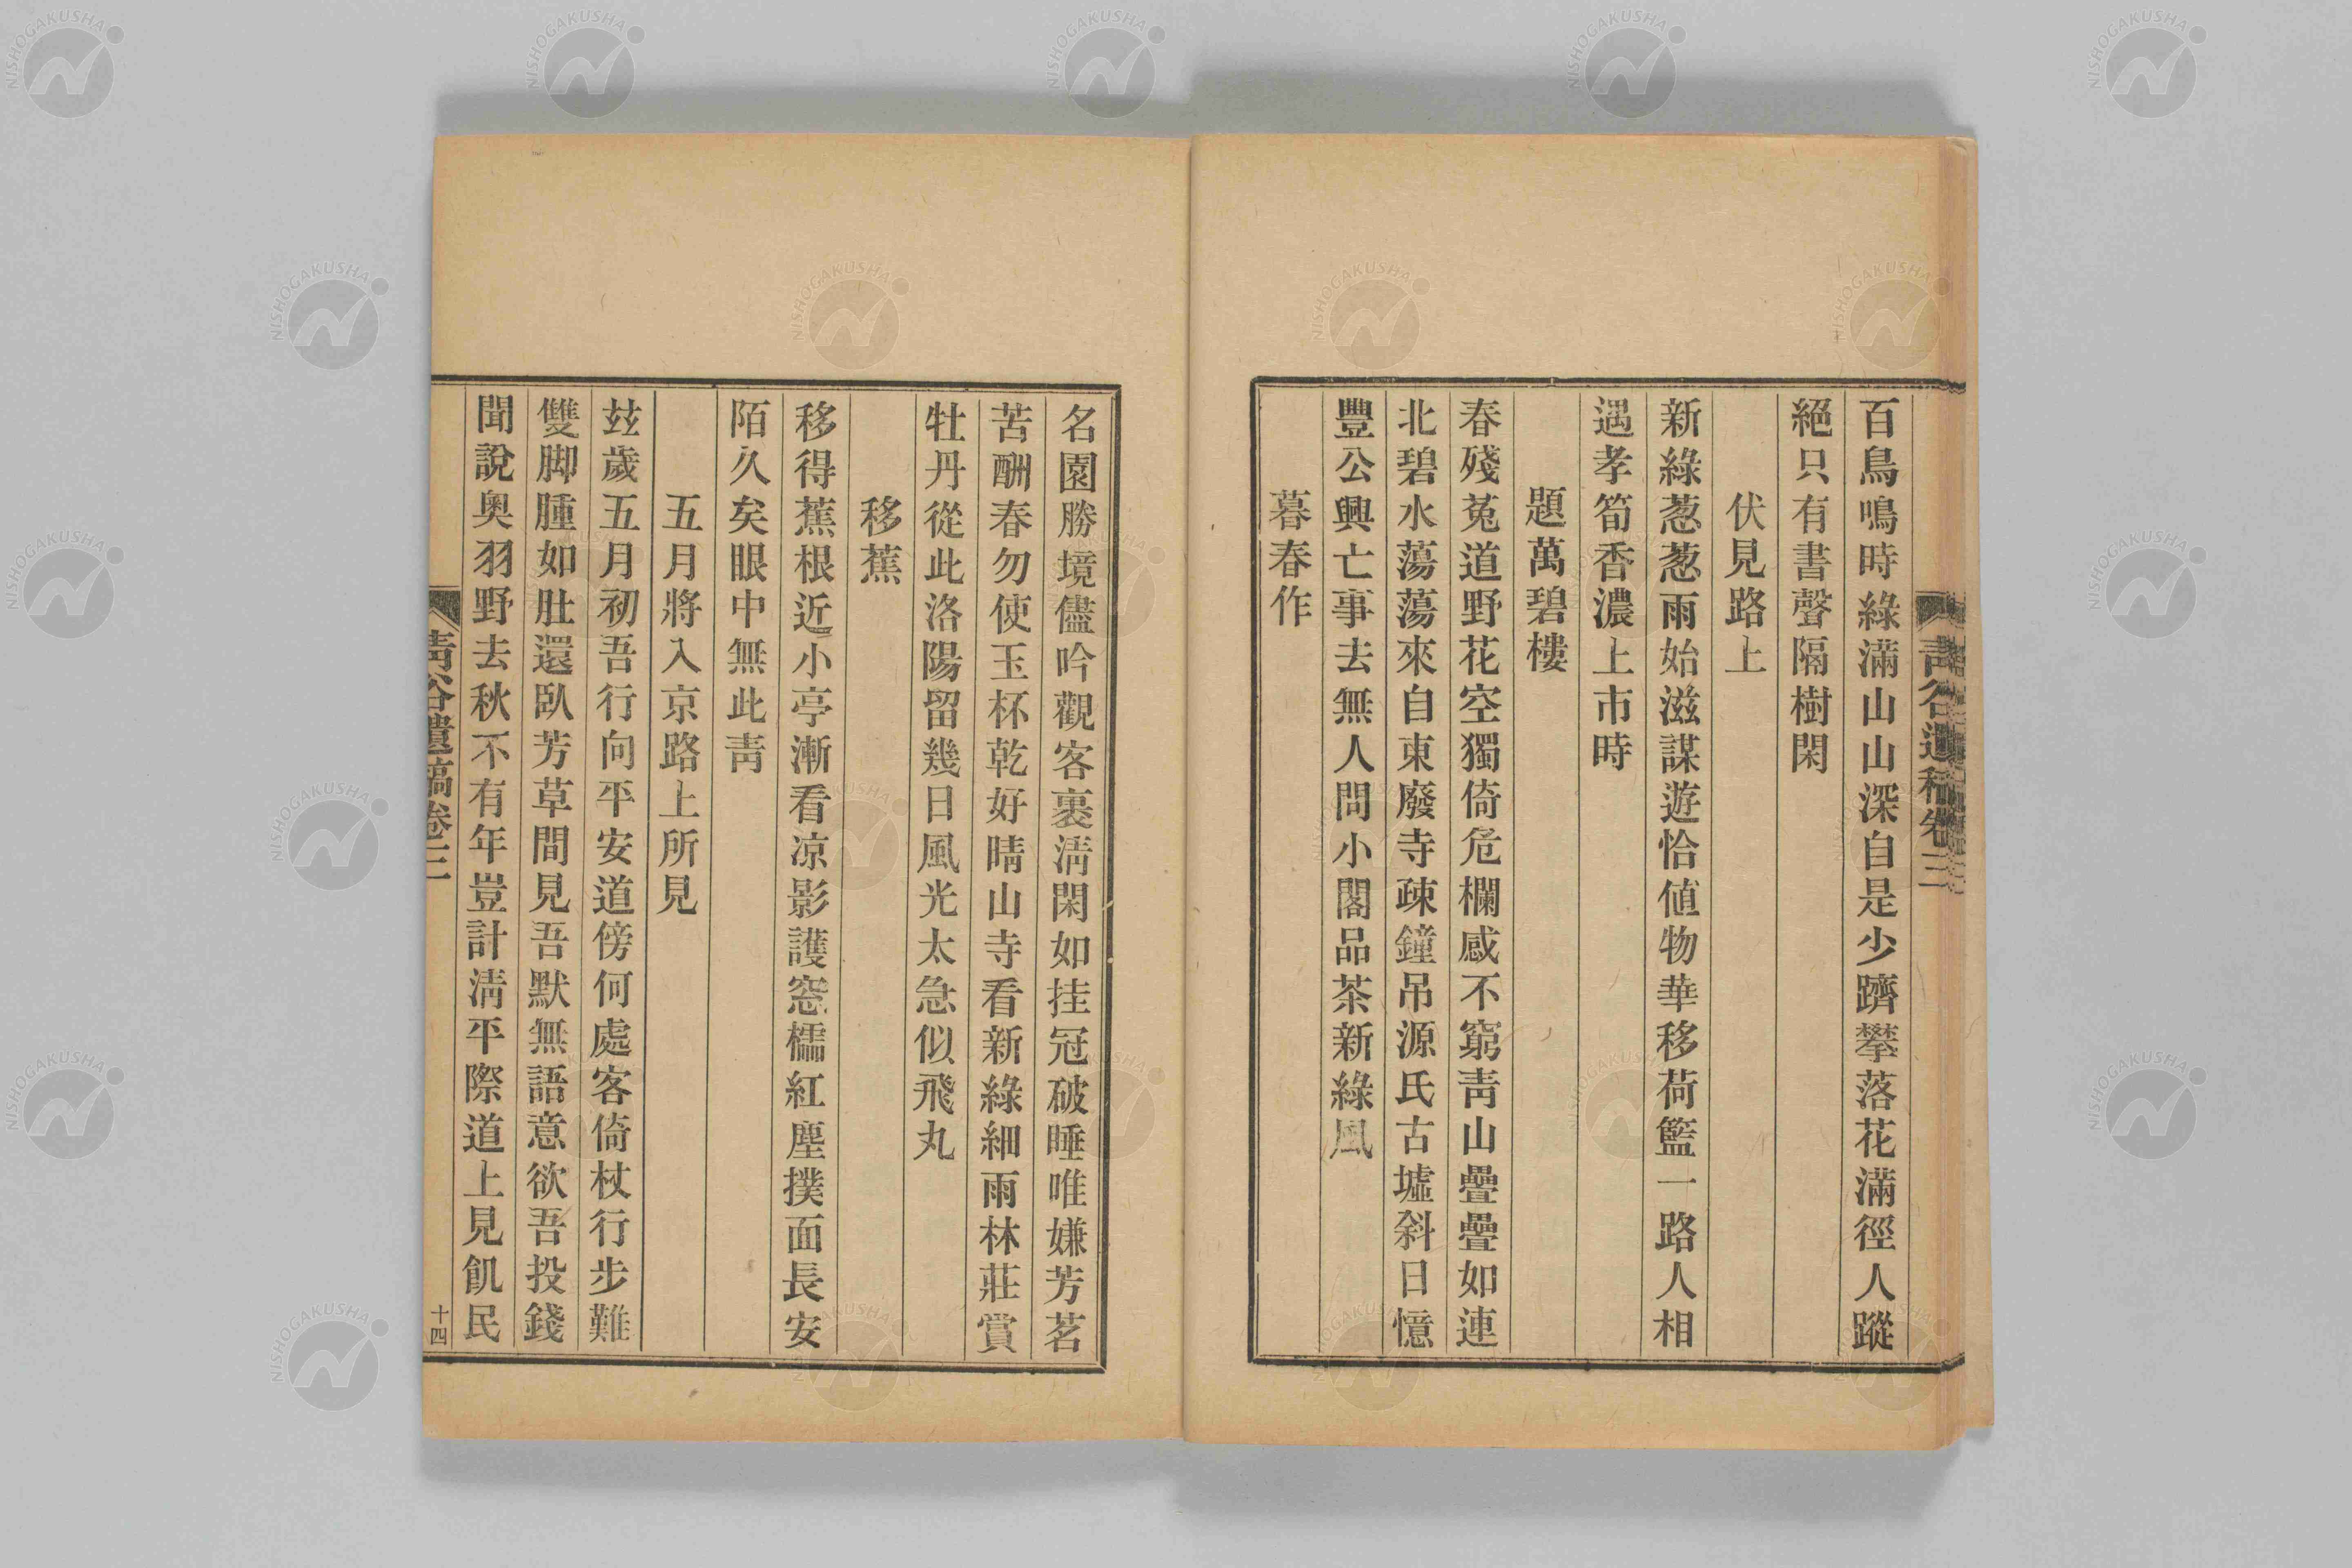 靑谷遺稿卷三
百鳥鳴時綠滿山山深自是少躋攀落花滿徑人蹤
絕只有書聲隔樹閑
伏見路上
新綠葱葱雨始滋謀遊恰値物華移荷籃一路人相
遇孝筍香濃上市時
題萬碧樓
春殘菟道野花空獨倚危欄感不窮靑山疊疊如連
北碧水蕩蕩來自東廢寺疎鐘吊源氏古墟斜日憶
豐公興亡事去無人問小閣品茶新綠風
暮春作
名園勝境儘吟觀客裏淸閑如挂冠破睡唯嫌芳茗
苦酬春勿使玉杯乾好晴山寺看新綠細雨林莊賞
牡丹從此洛陽留幾日風光太急似飛丸
移蕉
移得蕉根近小亭漸看凉影護窓櫺紅塵撲面長安
陌久矣眼中無此靑
五月將入京路上所見
玆歲五月初吾行向平安道傍何處客倚杖行步難
雙脚腫如肚還臥芳草間見吾默無語意欲吾投錢
聞說奧羽野去秋不有年豈計淸平際道上見飢民
靑谷遺稿卷三
十四
NISHOGAKUSHA